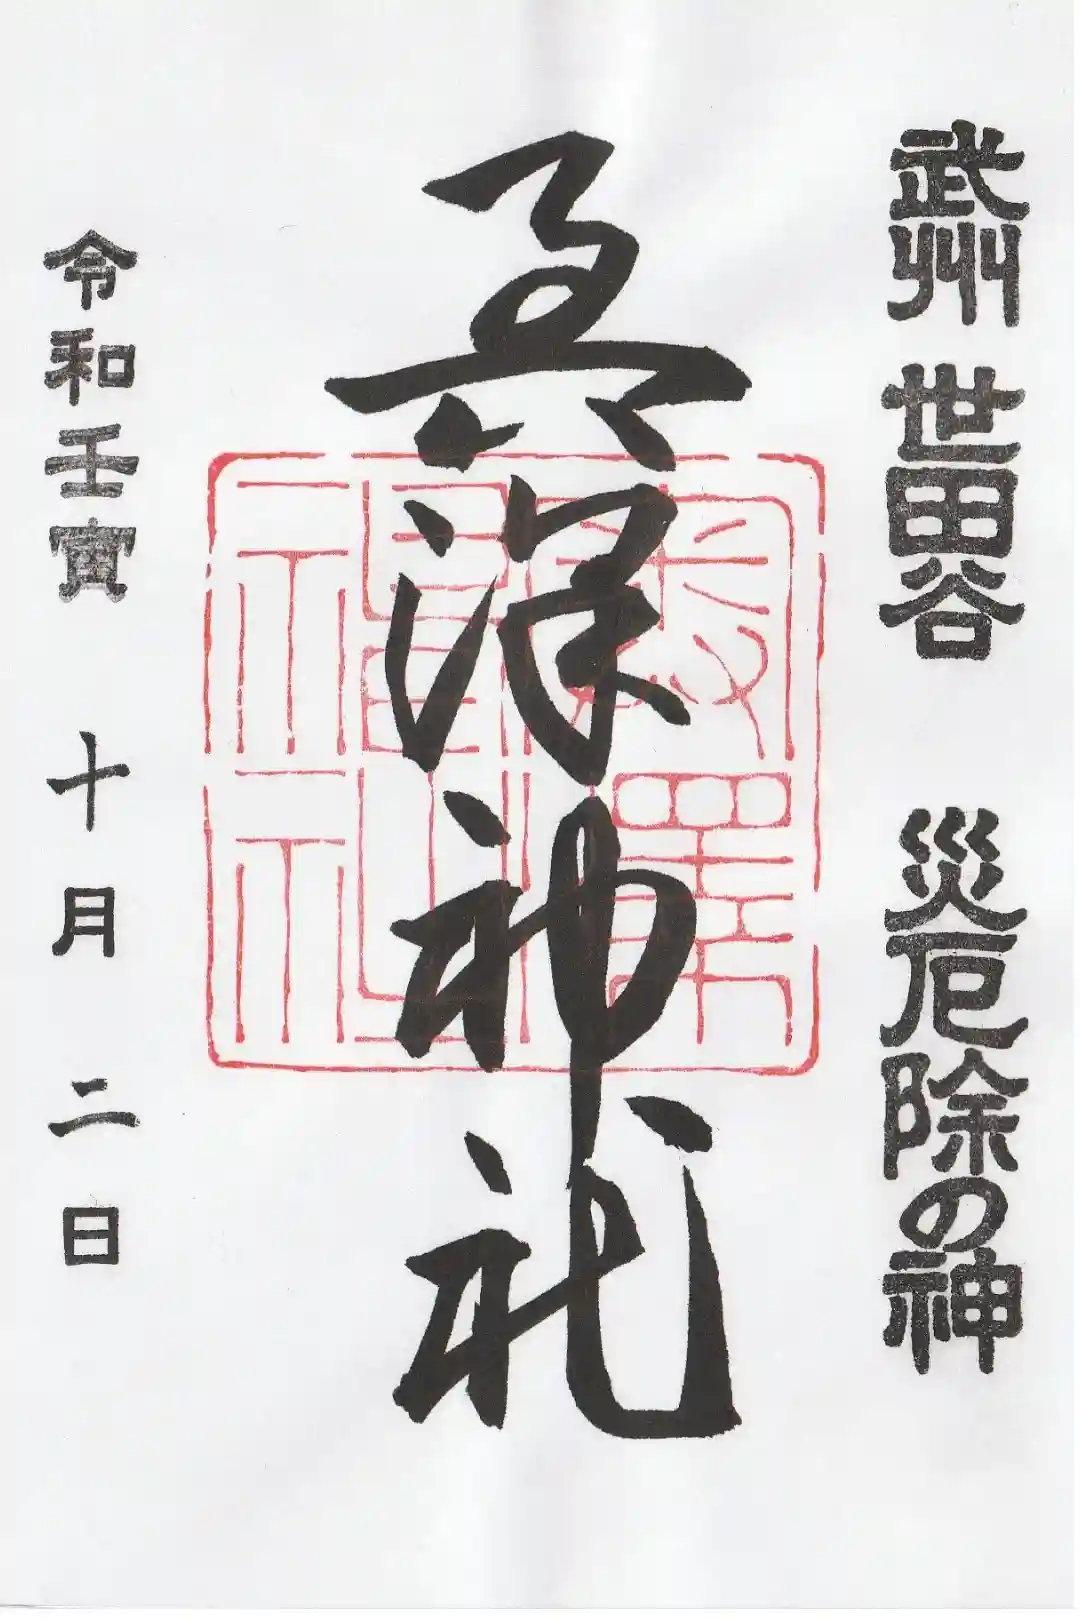 武州 世田谷 災厄除の神
奥澤神社
令和壬寅 十月 二日
奥澤
神社